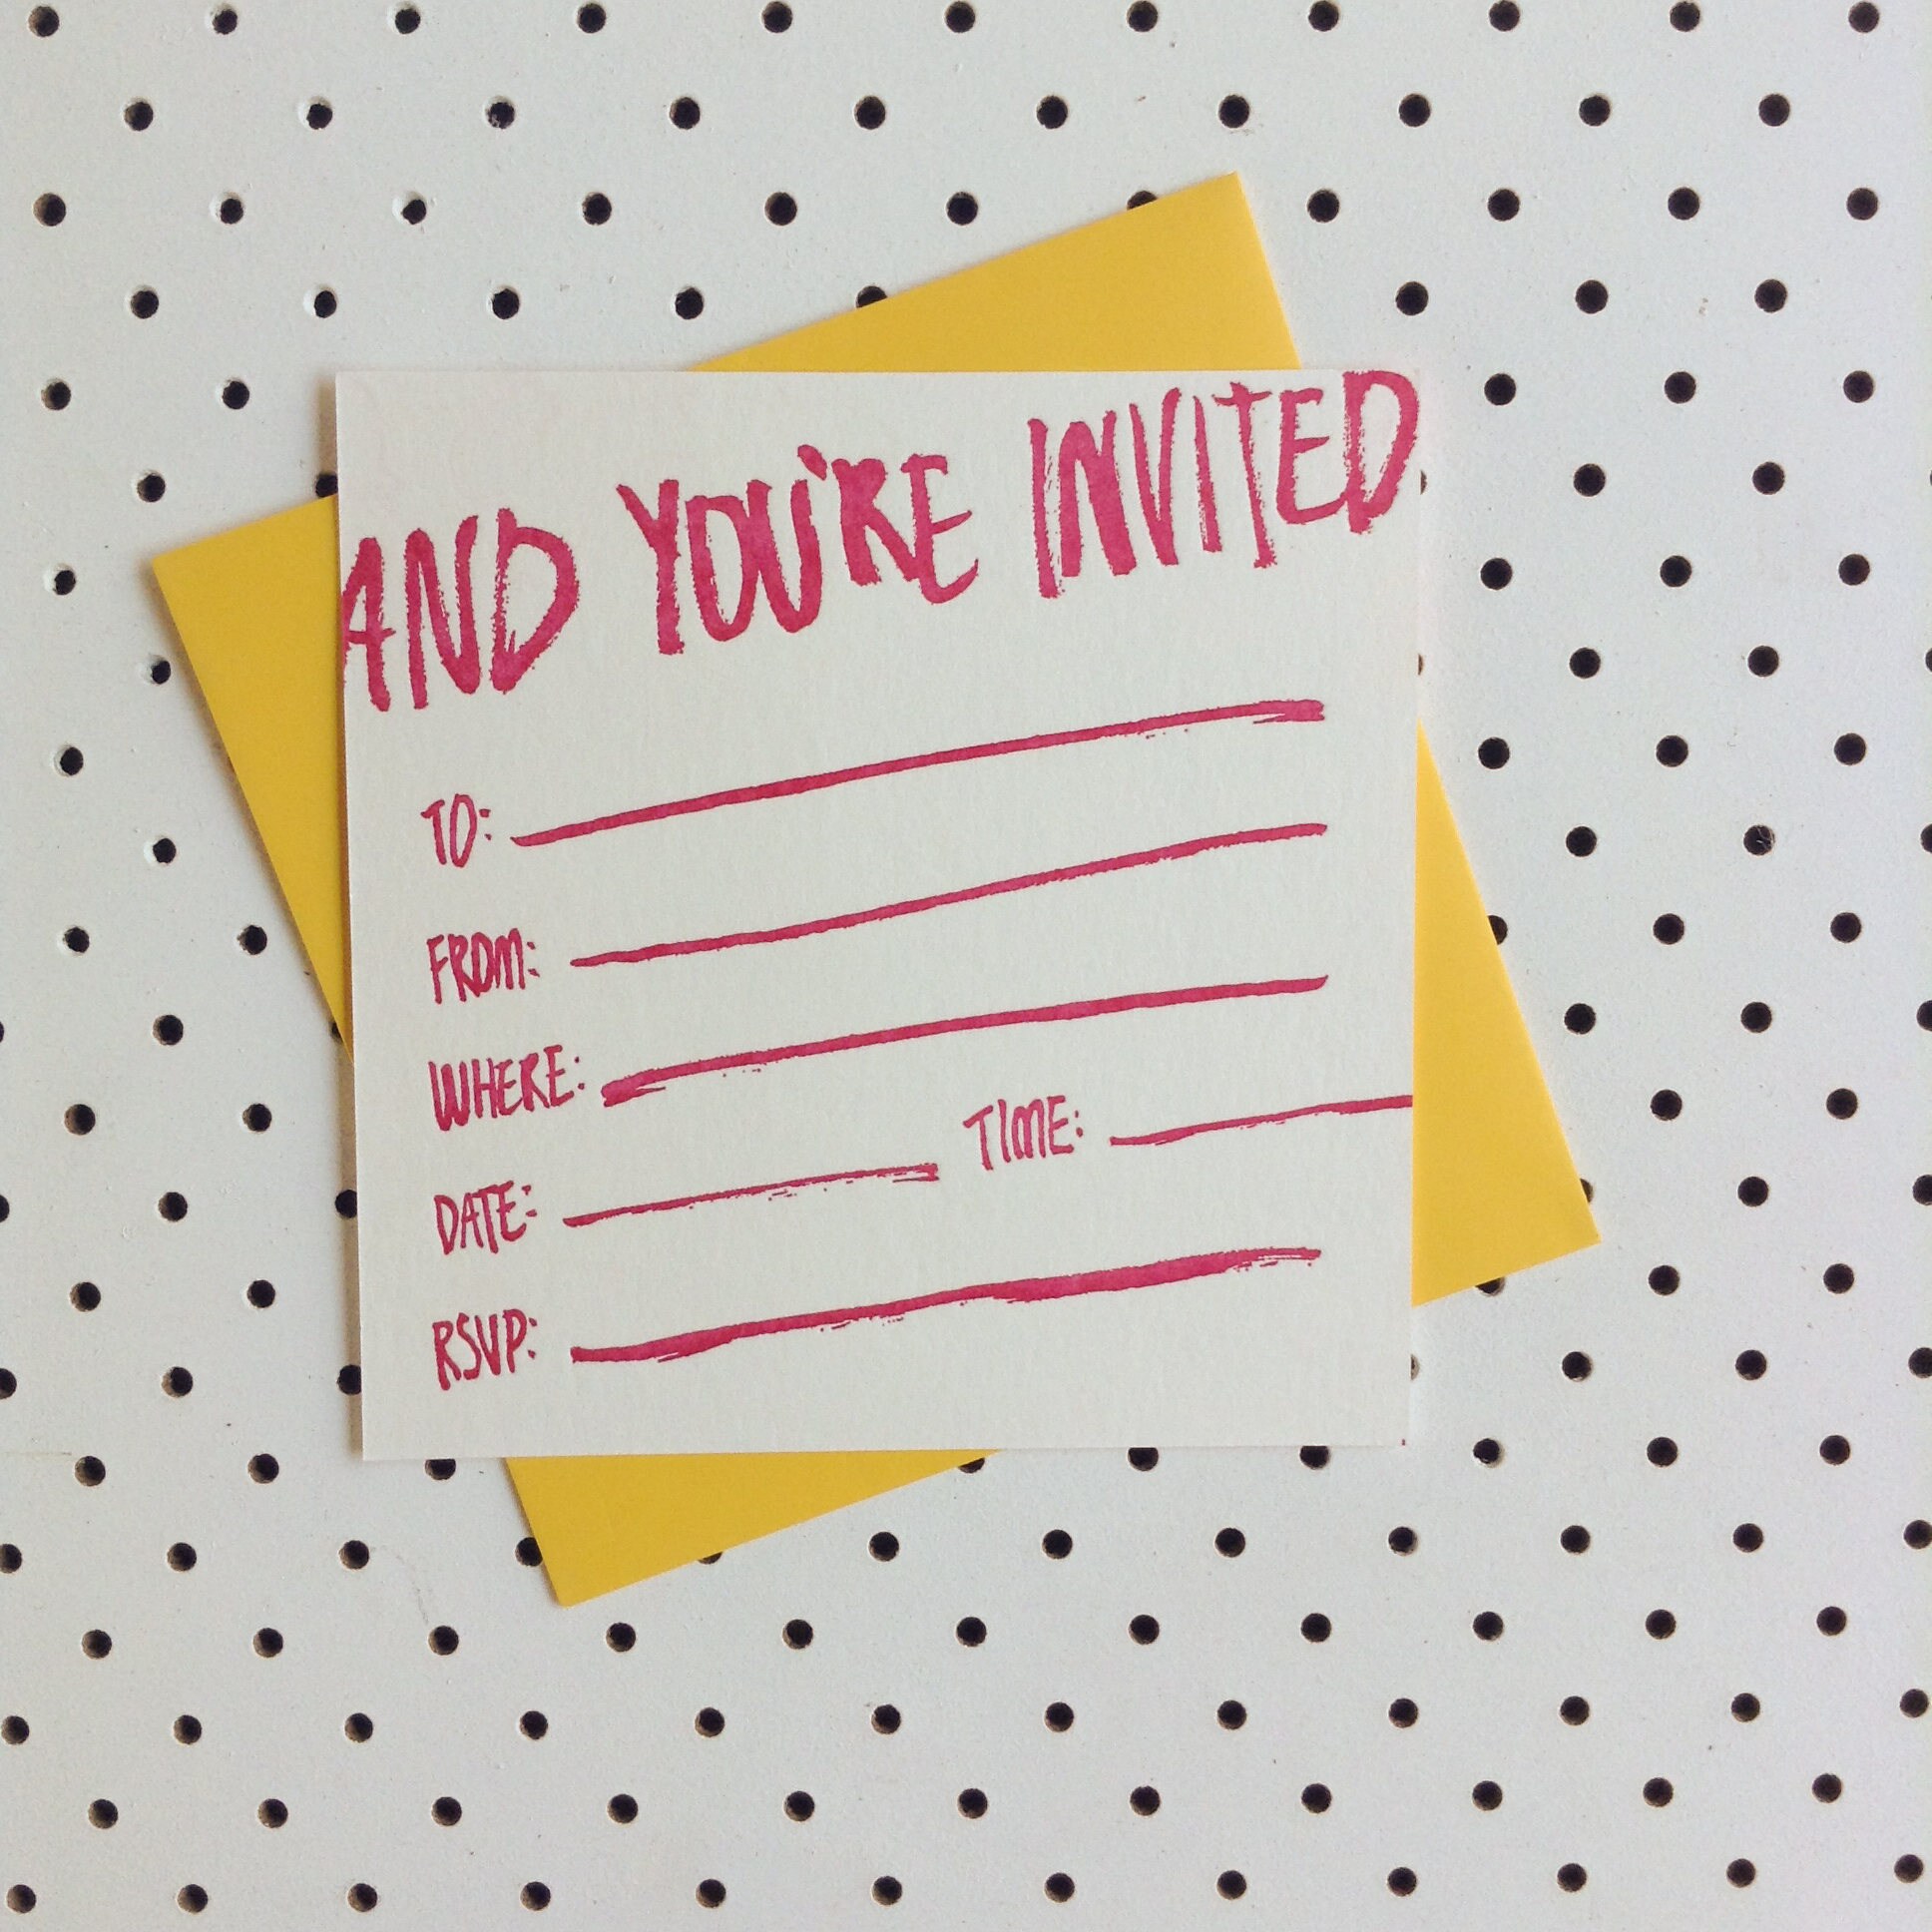 AND YOU'RE INVITED
TO:
FROM:
WHERE:
DATE: TIME:
RSVP: